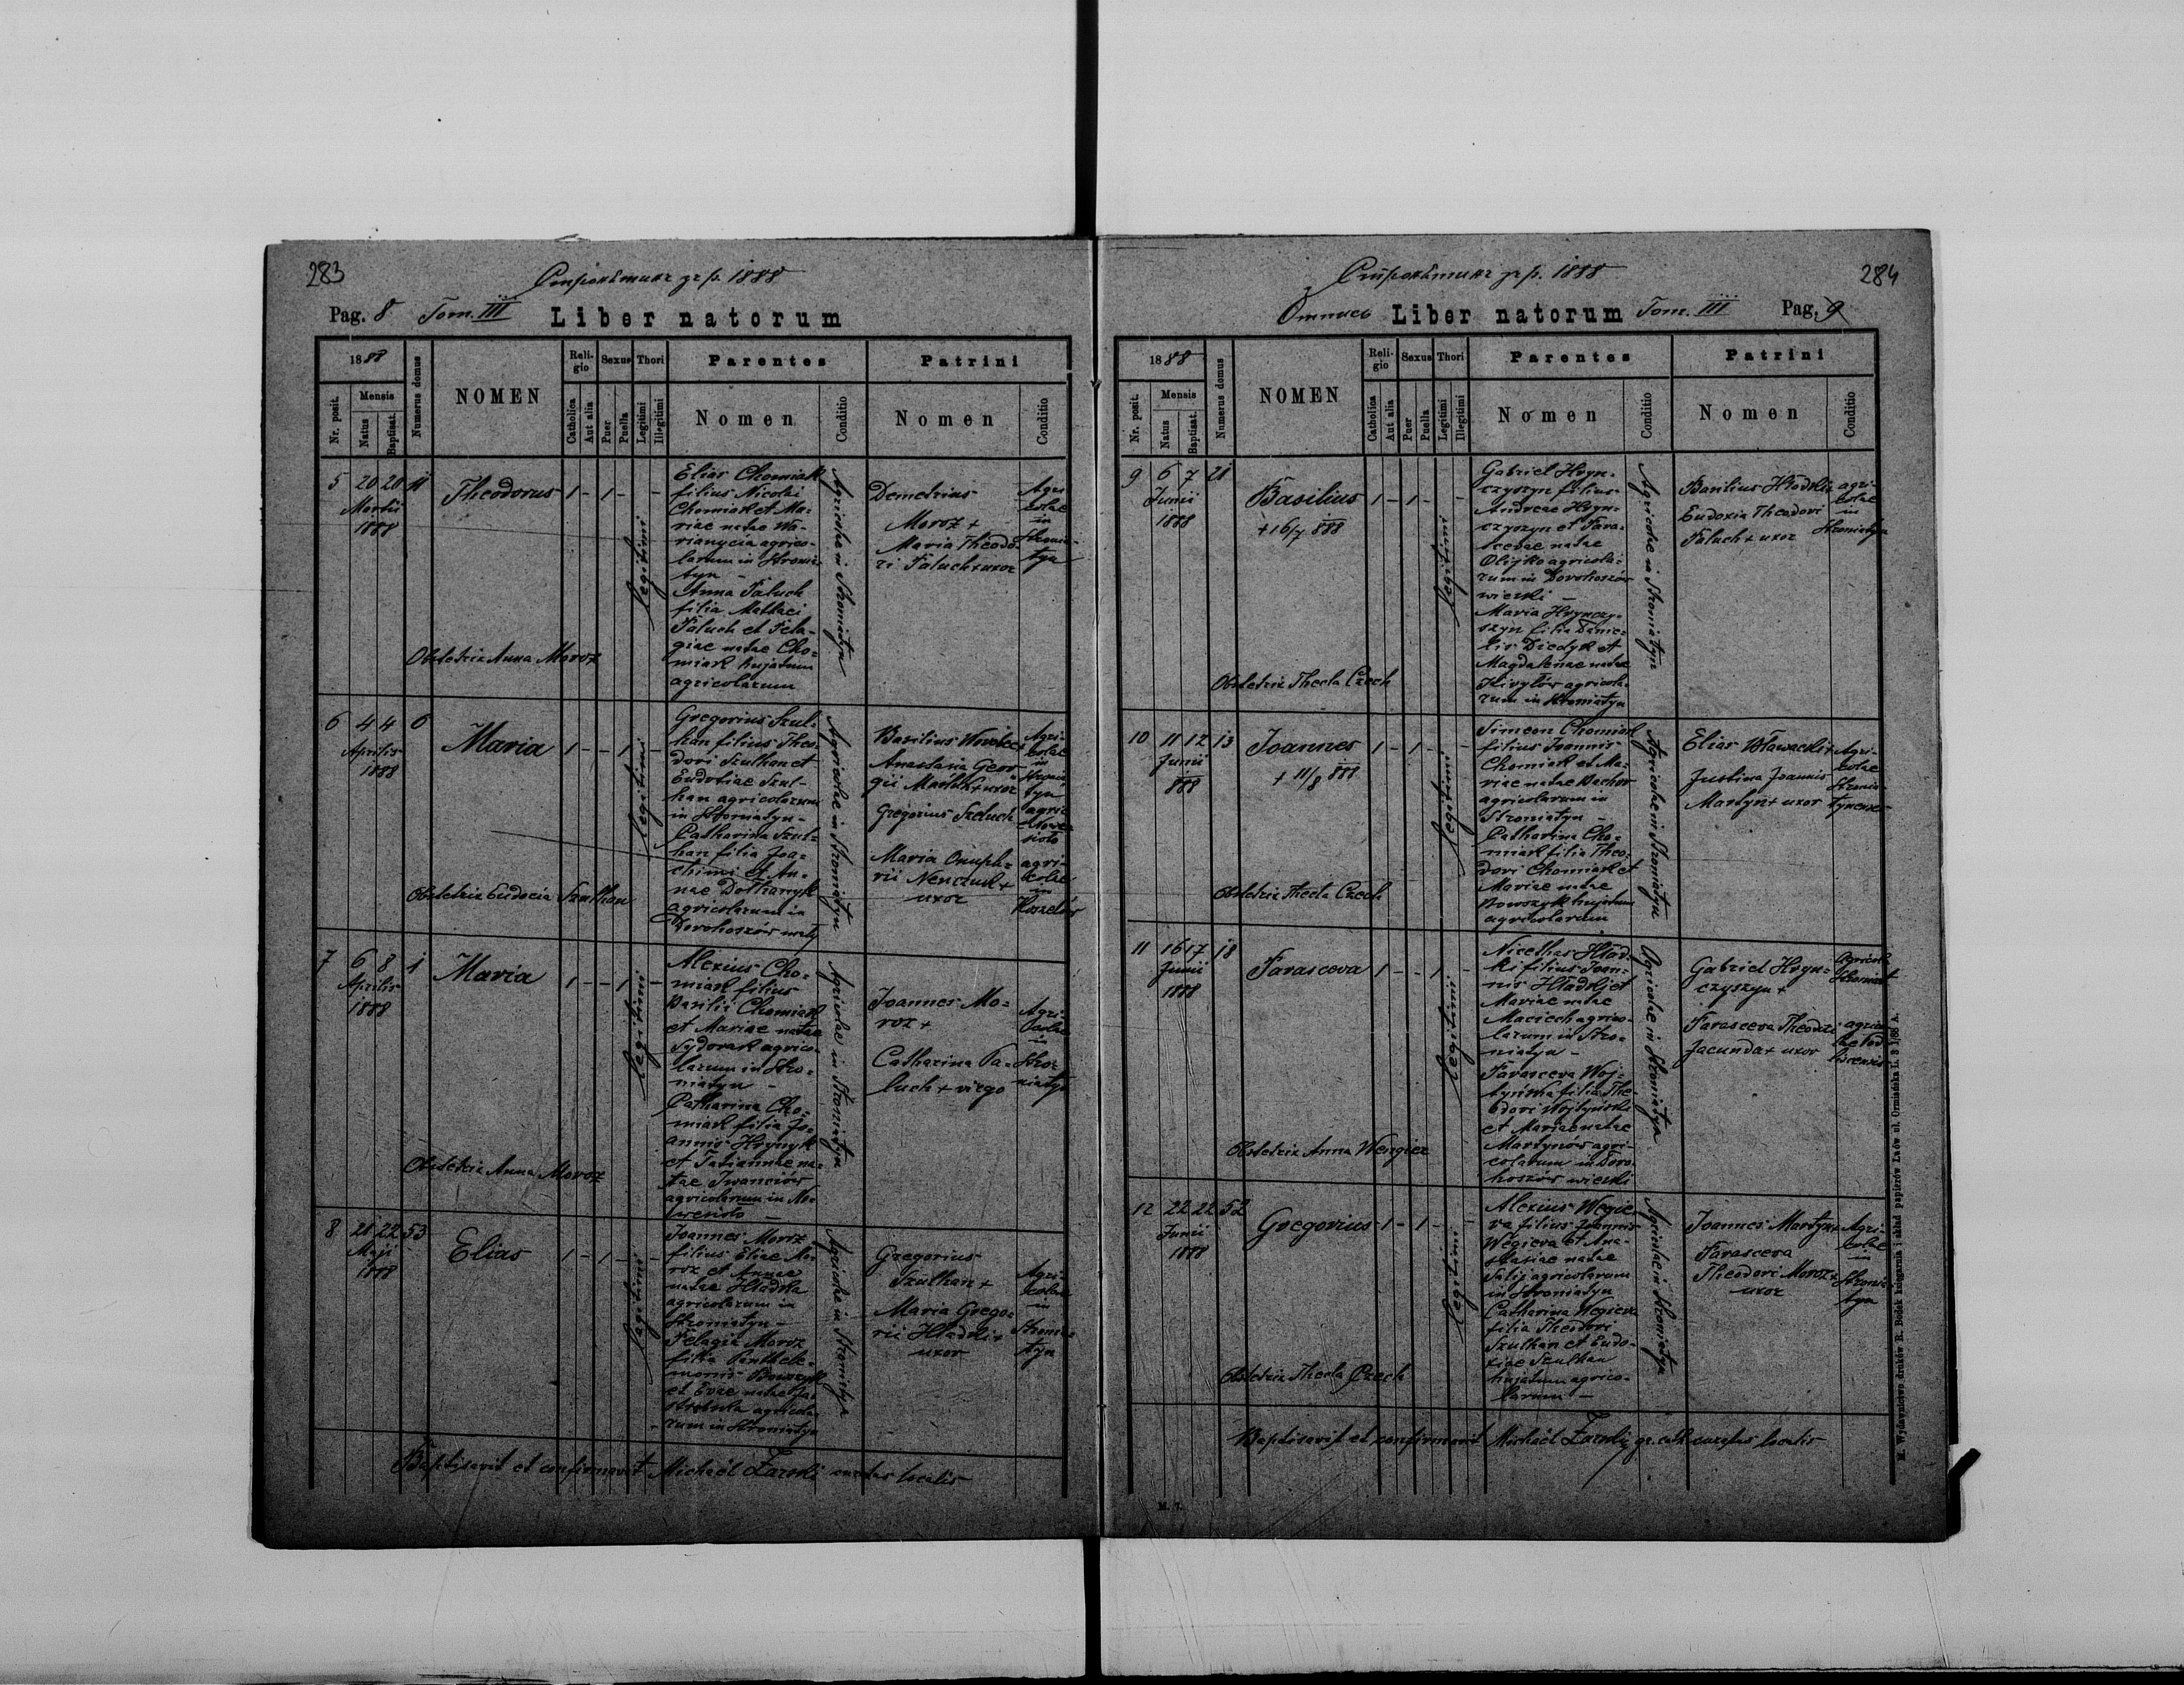 283
1888
Pag. 8 Tom. III Liber natorum
1888
Nr. posit.
Mensis
Natus
Baptisat.
Numerus domus
NOMEN
Religio
Catholica
Aut alia
Sexus
Puer
Puella
Thori
Legitimi
Illegitimi
Parentes
Nomen
Conditio
Patrini
Nomen
Conditio
5 20 20 11
Martii
1888
Theodorus 1 - 1 - -
legitimi
Elias Chomiak
filius Nicolai
Chomiak et Ma-
riae natae
agrico-
larum in Stronia-
tyn -
Anna Paluch
filia Matthaei
Paluch et Pela-
giae natae Cho-
miak hujatum
agricolarum
Agricolae in Stroniatyn
Demetrius
Moroz +
Maria Theodo-
ri Paluch + uxor
Agri-
colae
in
Stronia-
tyn
Obstetrix Anna Moroz
6 4 4 6
Aprilis
1888
Maria 1 - - 1 -
legitimi
Gregorius Szul-
han filius Theo-
dori Szulhan et
Eudociae Szul-
han agricolarum
in Stroniatyn -
Catharina Szul-
han filia Joa-
chimi et An-
nae
agricolarum in
Dorohoszów maly
Agricolae in Stroniatyn
Basilius
Anastasia Geor-
gii + uxor
Gregorius Szeluch
Maria Onuph-
rii Nenczuk +
uxor
Agri-
colae
in
Stronia-
tyn
agri-
colae
in
Obstetrix Eudocia Szulhan
7 6 8 1
Aprilis
1888
Maria 1 - - 1 -
legitimi
Alexius Cho-
miak filius
Basilii Chomiak
et Mariae natae
Sydorak agrico-
larum in Stro-
niatyn -
Catharina Cho-
miak filia Jo-
annis Hrynyk
et Tatiannae na-
tae Iwanciów
agricolarum in
Agricolae in Stroniatyn
Joannes Mo-
roz +
Catharina Pa-
luch + virgo
Agri-
colae
in
Stro-
niatyn
Obstetrix Anna Moroz
8 21 22 53
Maji
1888
Elias 1 - 1 - -
legitimi
Joannes Moroz
filius Eliae Mo-
roz et Annae
natae Hladka
agricolarum in
Stroniatyn -
Pelagia Moroz
filia Panthele-
monis Bowszyk
et Evae natae
agricola-
rum in Stroniatyn
Agricolae in Stroniatyn
Gregorius
Szulhan +
Maria Grego-
rii Hladki +
uxor
Agri-
colae
in
Stronia-
tyn
Baptisavit et confirmavit Michaël Zarski curatus localis
284
1888
Liber natorum Tom. III Pag. 9
1888
Nr. posit.
Mensis
Natus
Baptisat.
Numerus domus
NOMEN
Religio
Catholica
Aut alia
Sexus
Puer
Puella
Thori
Legitimi
Illegitimi
Parentes
Nomen
Conditio
Patrini
Nomen
Conditio
9 6 7 21
Junii
1888
Basilius 1 - 1 - -
+ 16/7 888
legitimi
Gabriel Hryn-
czyszyn filius
Andreae Hryn-
czyszyn et Para-
scevae natae
Olijko agricola-
rum in Dorohoszów
wielki -
Maria Hrynczy-
szyn filia Danie-
lis Diedyk et
Magdalenae natae
agricola-
rum in Stroniatyn
Agricolae in Stroniatyn
Basilius Hladki +
Eudoxia Theodori
Paluch + uxor
agri-
colae
in
Stroniatyn
Obstetrix Thecla Czech
10 11 12 13
Junii
888
Joannes 1 - 1 - -
+ 11/8 888
legitimi
Simeon Chomiak
filius Joannis
Chomiak et Ma-
riae natae
agricolarum in
Stroniatyn -
Catharina Cho-
miak filia Theo-
dori Chomiak et
Mariae natae
Bowszyk hujatum
agricolarum
Agricolae in Stroniatyn
Elias
Justina Joannis
Martyn + uxor
Agri-
colae
Stronia-
tynenses
Obstetrix Thecla Czech
11 16 17 18
Junii
1888
Parasceva 1 - - 1 -
legitimi
Nicethas Hlad-
ki filius Joan-
nis Hladkij et
Mariae natae
Maciech agrico-
larum in Stro-
niatyn -
Parasceva Woj-
tyńska filia The-
odori Wojtyński
et Mariae natae
Martynów agri-
colarum in Doro-
hoszów wielki
Agricolae in Stroniatyn
Gabriel Hryn-
czyszyn +
Parasceva Theodori
Jacunda + uxor
Obstetrix Anna Wengier
12 22 22 52
Junii
1888
Gregorius 1 - 1 - -
legitimi
Alexius Wegie-
ra filius Joannis
Wegiera et Ana-
stasiae natae
agricolarum
in Stroniatyn
Catharina Wegiera
filia Theodori
Szulhan et Eudo-
xiae Szulhan
hujatum agrico-
larum -
Agricolae in Stroniatyn
Joannes Martyn +
Parasceva
Theodori Moroz +
uxor
Agri-
colae
in
Stronia-
tyn
Obstetrix Thecla Czech
Baptisavit et confirmavit Michaël Zarski gr. cath. curatus localis
M. 7.
M. Wydawnictwo druków R. Bodek księgarnia i skład papierów Lwów ul. Ormiańska L. 3